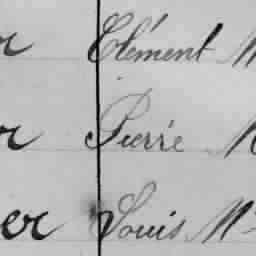 r Clément M
r Pierre M
er Louis M